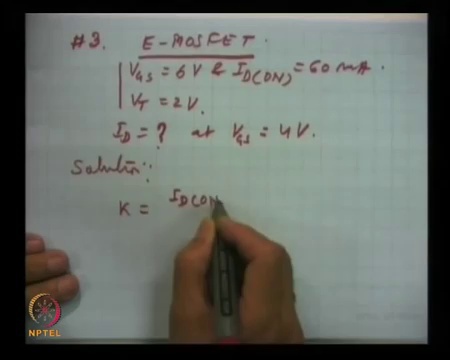 #3. E-MOSFET.
VGS = 6V & ID(ON) = 60 mA.
VT = 2V.
ID = ? at VGS = 4V.
Solution:
K = ID(ON
NPTEL